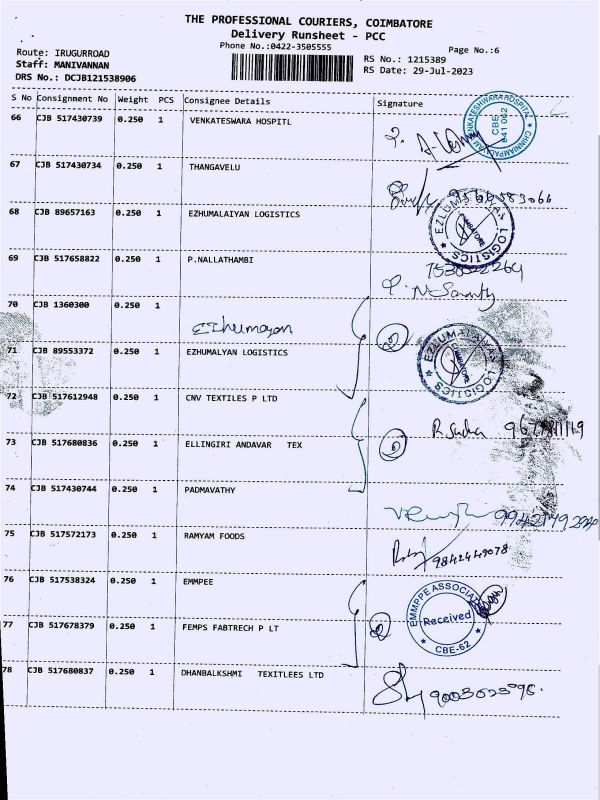 THE PROFESSIONAL COURIERS, COIMBATORE
Delivery Runsheet - PCC
Phone No.:0422-3505555
Page No.:6
Route: IRUGURROAD
Staff: MANIVANNAN
DRS No.: DCJB121538906
RS No.: 1215389
RS Date: 29-Jul-2023
S No Consignment No Weight PCS Consignee Details Signature
66 CJB 517430739 0.250 1 VENKATESWARA HOSPITL
VENKATESWARA HOSPITAL
CBE
641 062
CHINNIAMPALAYAM
67 CJB 517430734 0.250 1 THANGAVELU
68 CJB 89657163 0.250 1 EZHUMALAIYAN LOGISTICS
EZLUMALAIYAN LOGISTICS
COIMBATORE
69 CJB 517658822 0.250 1 P.NALLATHAMBI
70 CJB 1360300 0.250 1
Ezhumayan
2
71 CJB 89553372 0.250 1 EZHUMALYAN LOGISTICS
EZLUMALAIYAN LOGISTICS
COIMBATORE
72 CJB 517612948 0.250 1 CNV TEXTILES P LTD
73 CJB 517680836 0.250 1 ELLINGIRI ANDAVAR TEX
2
74 CJB 517430744 0.250 1 PADMAVATHY
75 CJB 517572173 0.250 1 RAMYAM FOODS
9842449078
76 CJB 517538324 0.250 1 EMMPEE
EMMPPE ASSOCIA
Received
CBE-62
77 CJB 517678379 0.250 1 FEMPS FABTRECH P LT
2
78 CJB 517680837 0.250 1 DHANBALKSHMI TEXITLEES LTD